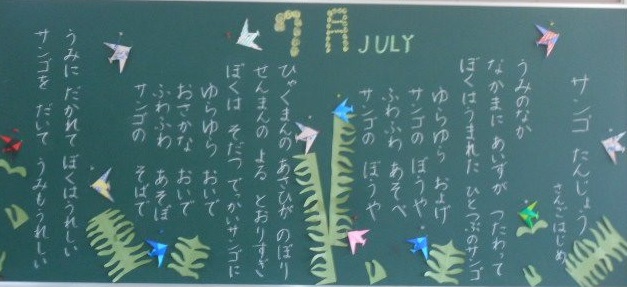 7月 JULY
サンゴ たんじょう
さんごはじめ
うみのなか
なかまに あいずが つたわって
ぼくはうまれた ひとつぶのサンゴ
ゆらゆら およげ
サンゴの ぼうや
ふわふわ あそべ
サンゴの ぼうや
ひゃくまんの あさひが のぼり
せんまんの よる とおりすぎ
ぼくは そだつ でかいサンゴに
ゆらゆら おいで
おさかな おいで
ふわふわ あそぼ
サンゴの そばで
うみに だかれて ぼくはうれしい
サンゴを だいて うみもうれしい